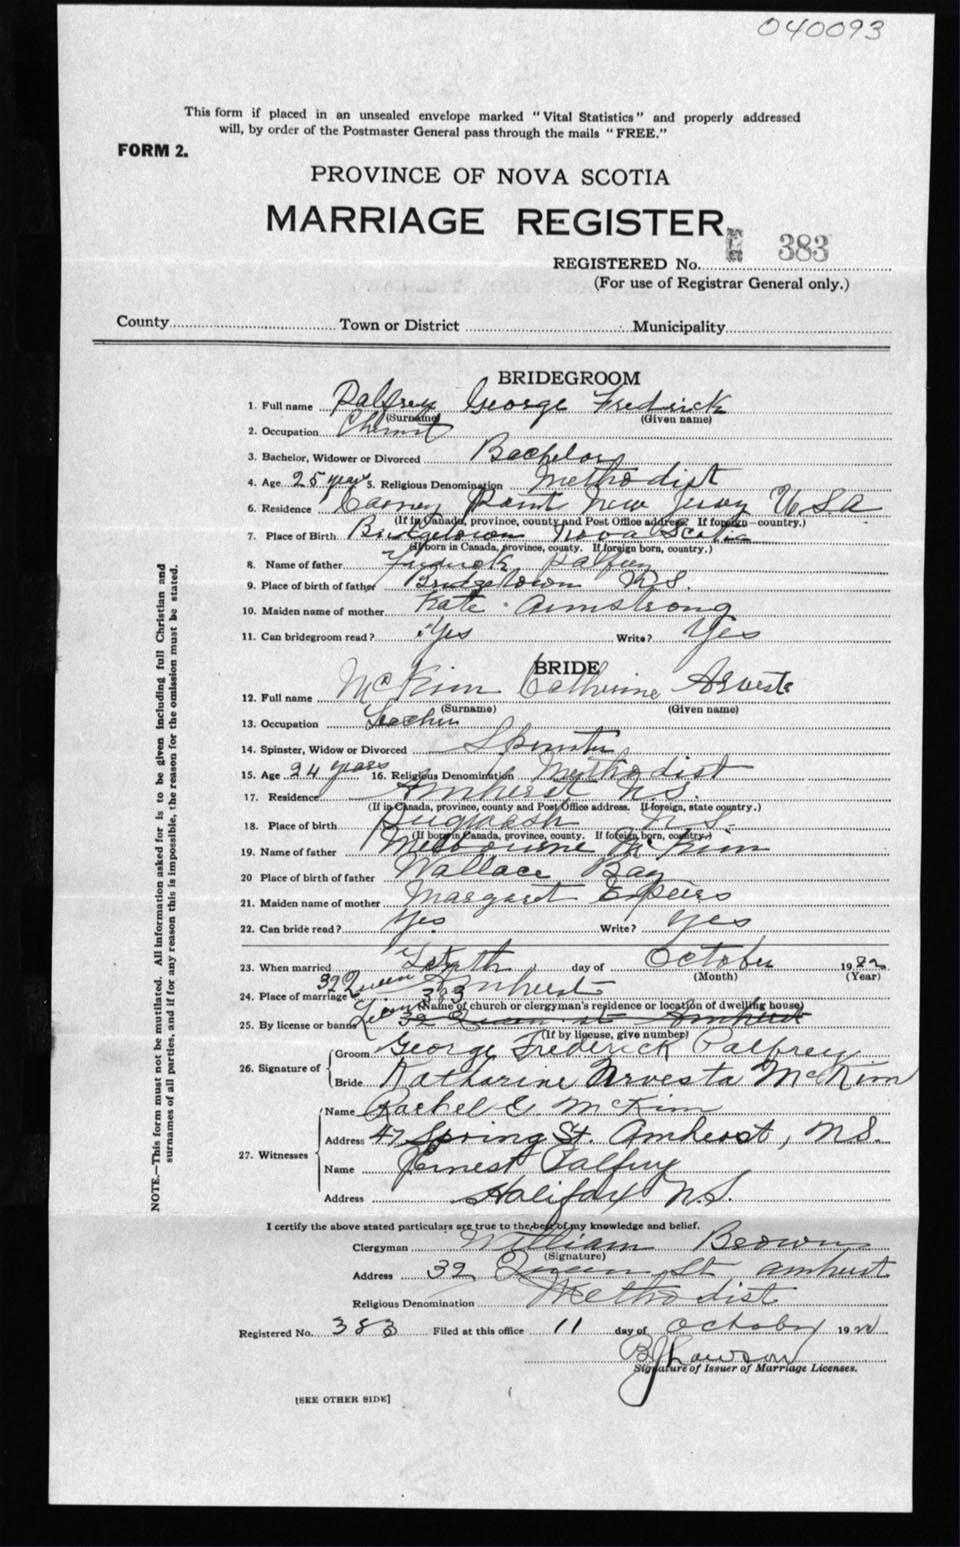 040093
This form if placed in an unsealed envelope marked "Vital Statistics" and properly addressed
will, by order of the Postmaster General pass through the mails "FREE."
FORM 2.
PROVINCE OF NOVA SCOTIA
MARRIAGE REGISTER
REGISTERED No. 383
(For use of Registrar General only.)
County Town or District Municipality
BRIDEGROOM
1. Full name Palfrey George Fredrick
(Surname) (Given name)
2. Occupation Chemist
3. Bachelor, Widower or Divorced Bachelor
4. Age 25 years 5. Religious Denomination Methodist
6. Residence Carney Point New Jersy U.S.A
(If in Canada, province, county and Post Office address. If foreign—country.)
7. Place of Birth Bridgetown Nova Scotia
(If born in Canada, province, county. If foreign born, country.)
8. Name of father Fredrick Palfrey
9. Place of birth of father Bridgetown N.S.
10. Maiden name of mother Kate Armstrong
11. Can bridegroom read? Yes Write? Yes
BRIDE
12. Full name McKim Catherine Arvesta
(Surname) (Given name)
13. Occupation Teacher
14. Spinster, Widow or Divorced Spinster
15. Age 24 years 16. Religious Denomination Methodist
17. Residence Amherst N.S.
(If in Canada, province, county and Post Office address. If foreign, state country.)
18. Place of birth Pugwash N.S.
(If born in Canada, province, county. If foreign born, country.)
19. Name of father Melbourne McKim
20 Place of birth of father Wallace Bay
21. Maiden name of mother Margaret Peers
22. Can bride read? Yes Write? Yes
23. When married day of October 19
(Month) (Year)
24. Place of marriage 32 Queen Amherst
(Name of church or clergyman's residence or location of dwelling house)
25. By license or banns License 383 32 Queen st Amherst
(If by license, give number)
26. Signature of
Groom George Frederick Palfrey
Bride Katharine Arvesta McKim
27. Witnesses
Name Rachel E. McKim
Address 47 Spring St. Amherst, N.S.
Name Ernest Palfrey
Address Halifax N.S.
I certify the above stated particulars are true to the best of my knowledge and belief.
Clergyman William Brown
(Signature)
Address 32 Queen St Amherst
Religious Denomination Methodist
Registered No. 383 Filed at this office 11 day of October 19
B J Lawson
Signature of Issuer of Marriage Licenses.
[SEE OTHER SIDE]
NOTE.—This form must not be mutilated. All information asked for is to be given including full Christian and
surnames of all parties, and if for any reason this is impossible, the reason for the omission must be stated.